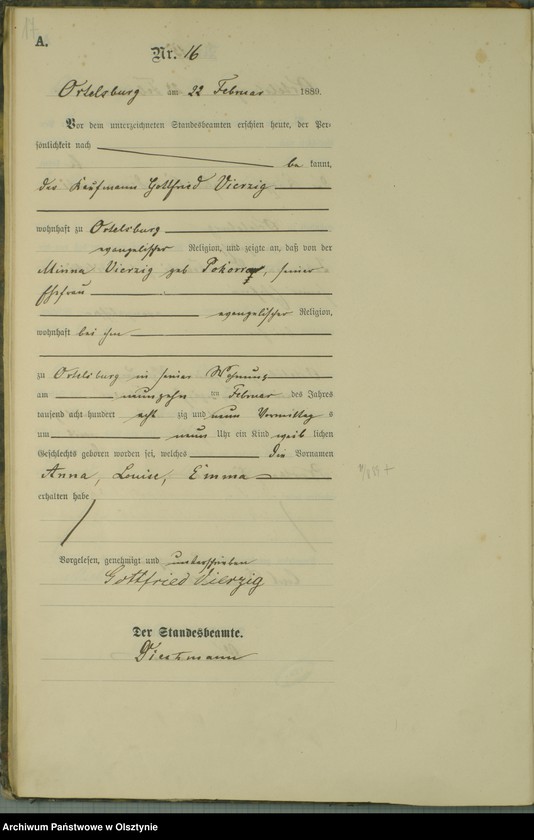 A.
Nr. 16
Ortelsburg am 22 Februar 1889.
Vor dem unterzeichneten Standesbeamten erschien heute, der Per-
sönlichkeit nach
be kannt,
der Kaufmann Gottfried Vierzig
wohnhaft zu Ortelsburg
evangelischer Religion, und zeigte an, daß von der
Minna Vierzig geb, seiner
Ehefrau
evangelischer Religion,
wohnhaft bei ihm
zu Ortelsburg in seiner Wohnung
am neunzehn ten Februar des Jahres
tausend acht hundert acht zig und neun Vormittag s
um neun Uhr ein Kind weib lichen
Geschlechts geboren worden sei, welches die Vornamen
Anna, Louise, Emma
erhalten habe
Vorgelesen, genehmigt und unterschrieben
Gottfried Vierzig
Der Standesbeamte.
Archiwum Państwowe w Olsztynie